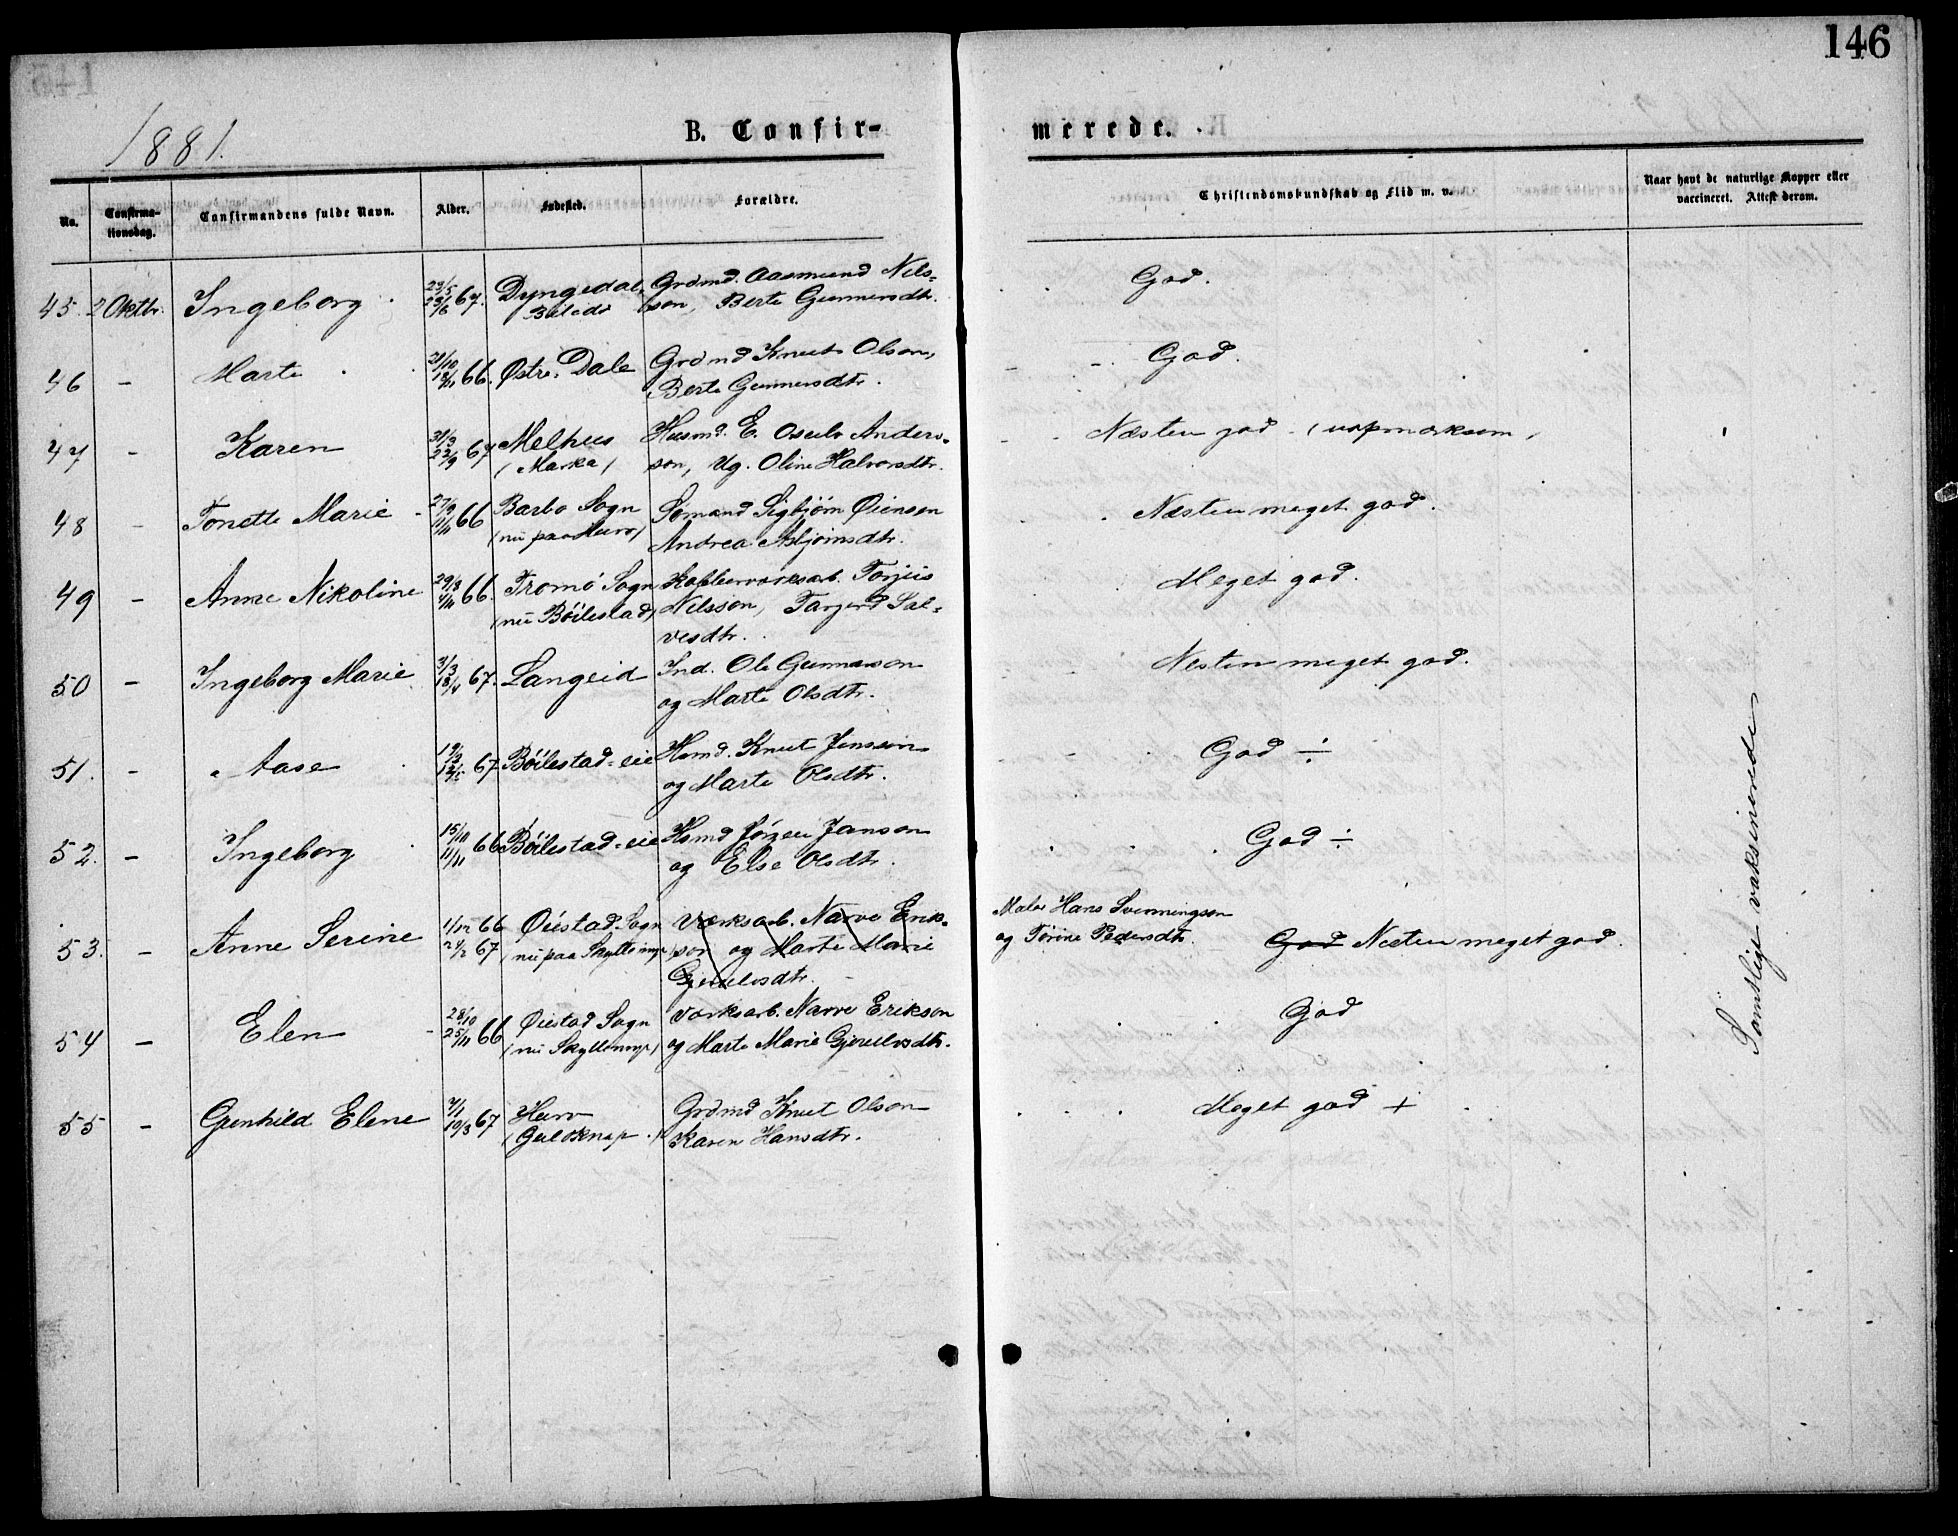 146
1881.
B. Confir-
merede.
No.
Confirma-
tionsdag.
Confirmandens fulde Navn.
Alder.
Fødested.
Forældre.
Christendomskundskab og Flid m. v.
Naar havt de naturlige Kopper eller
vaccineret. Attest derom.
45. 2 Oktbr. Ingeborg 23/5 23/6 67. Dyngedal, Grdmd. Aasmund Nils- God.
son, Berte Gunnersdtr.
46 - Marte 21/10 18/11 66. Østre. Dale Grdmd Knut Olson, God.
Berte Gunnersdtr.
47 - Karen 31/3 67 Melhus Husmd. E. Anders- Næsten god - (uopmærksom)
(Marka) son, Ug. Oline Halvorsdtr.
48 - Tonette Marie 27/9 11/11 66 Barbo Sogn Sømand Sigbjørn Øiensen Næsten meget god.
(nu paa Herv) Andrea Asbjørnsdtr.
49 - Anne Nikoline 29/8 66. Tromø Sogn Kobberværksarb. Torjus Meget god.
(nu Bøilestad) Nilsson, Targerd Sal-
vesdtr.
50 - Ingeborg Marie 3/3 18/4 67. Langeid Ind. Ole Gunnarson Næsten meget god.
og Marte Olsdtr.
51. - Aase 19/3 67 Bøilestad-eie Hsmd. Knut Jensson God ÷
og Marte Olsdtr.
52. - Ingeborg 15/10 11/11 66 Bøilestad-eie Hsmd Jørgen Janson God ÷
og Else Olsdtr.
53. - Anne Serine 1/12 66 Øiestad Sogn Værksarb. Narve Erik- Maler Hans Svenningsen
2/2 67 (nu paa Skyttemyr) son og Marte Marie og Tørine Pedersdtr. God Næsten meget god.
Gjeruldsdtr.
54 - Elen 28/10 25/11 66 Øiestad Sogn Værksarb. Narve Erikson God
(nu Skyttemyr) og Marte Marie Gjeruldsdtr.
55 - Gunhild Elene 7/1 10/3 67 Herv Grdmd Knut Olson Meget god +
(Guldknap.) Karen Hansdtr.
Samtlige vaksinerede